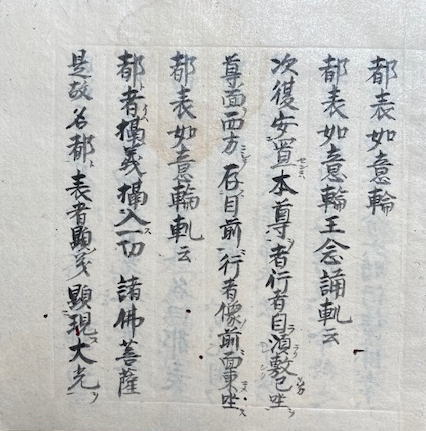 都表如意輪
都表如意輪王念誦軌云
次復安置本尊者行者自須敷已坐
尊面西方在目前行者像前面東坐
都表如意輪軌云
都者揭義揭入一切諸佛菩薩
是故名都表者顯義顯現大光